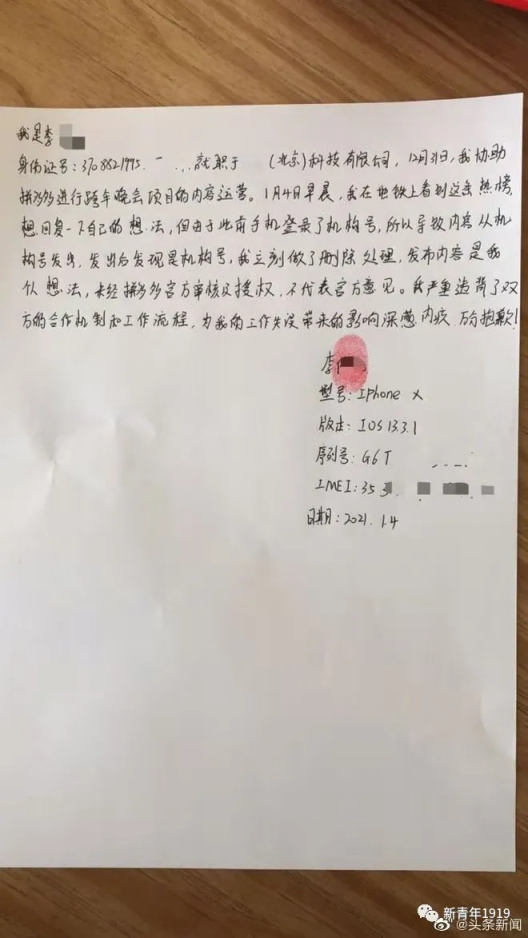 我是李
身份证号:3708821995 就职于 (北京)科技有限公司,12月31日,我协助
拼多多进行跨年晚会项目的内容运营。1月4日早晨,我在地铁上看到这条热榜,
想回复一下自己的想法,但由于此前手机登录了机构号,所以导致内容从机
构号发出,发出后发现是机构号,我立刻做了删除处理,发布内容是我
个人想法,未经拼多多官方审核及授权,不代表官方意见。我严重违背了双
方的合作机制和工作流程,为我的工作失误带来的影响深感内疚,万分抱歉!
李
型号:Iphone X
版本:IOS 13.3.1
序列号:G6T
IMEI:35
日期:2021.1.4
新青年1919
@头条新闻